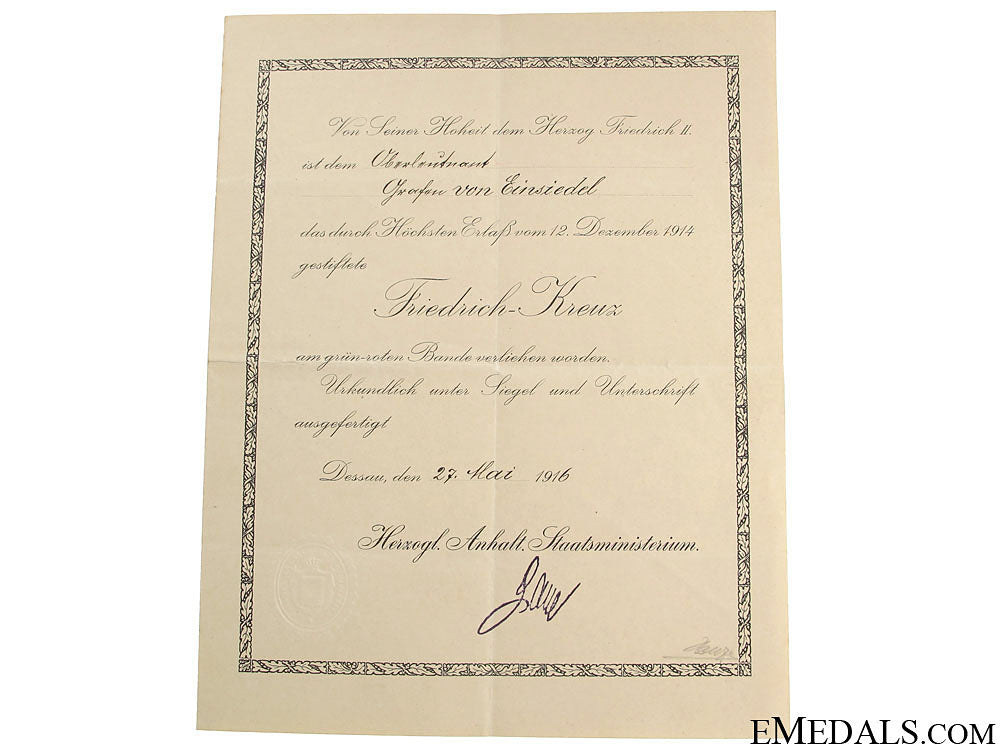 Von Seiner Hoheit dem Herzog Friedrich II.
ist dem Oberleutnant
Grafen von Einsiedel
das durch Höchsten Erlaß vom 12. Dezember 1914
gestiftete
Friedrich-Kreuz
am grün-roten Bande verliehen worden.
Urkundlich unter Siegel und Unterschrift
ausgefertigt
Dessau, den 27. Mai 1916
Herzogl. Anhalt. Staatsministerium.
EMEDALS.COM